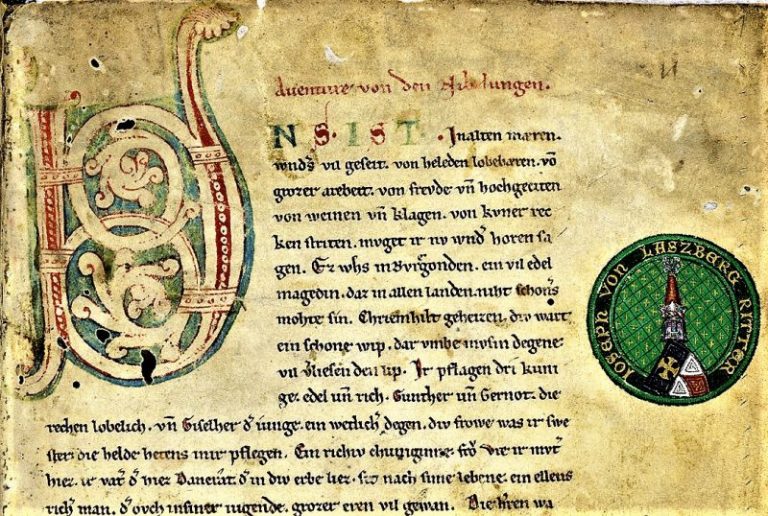 Auenture von den Nibelungen.
VNS. IST. In alten mæren.
wnds vil geseit. von heleden lobebæren. vō
grozer arebeit. von frevde vn̄ hochgeciten
von weinen vn̄ klagen. von kvner rec
ken striten. mvget ir nv wnd's horen sa
gen. Ez whs in Bvrgonden. ein vil edel
magedin. daz in allen landen. niht schon's
mohte sin. Chriemhilt geheizen. div wart
ein schone wip. dar vmbe mvsin degene
vil vliesen den lip. Ir pflagen dri kuni
ge. edel vn̄ rich. Gunther vn̄ Gernot. die
rechen lobelich. vn̄ Giselher d' iunge. ein wetlich' degen. div frowe was ir swe
ster. die helde hetens inir pflegen. Ein richiv chuniginne. frō Vte ir mvt'
hiez. ir vat' d' hiez Dancrat. d' in div erbe liez. sit nach sime lebene. ein ellens
rich man. d' ovch insiner iugende. grozer eren vil gewan. Die h'ren wa
IOSEPH VON LASZBERG RITTER